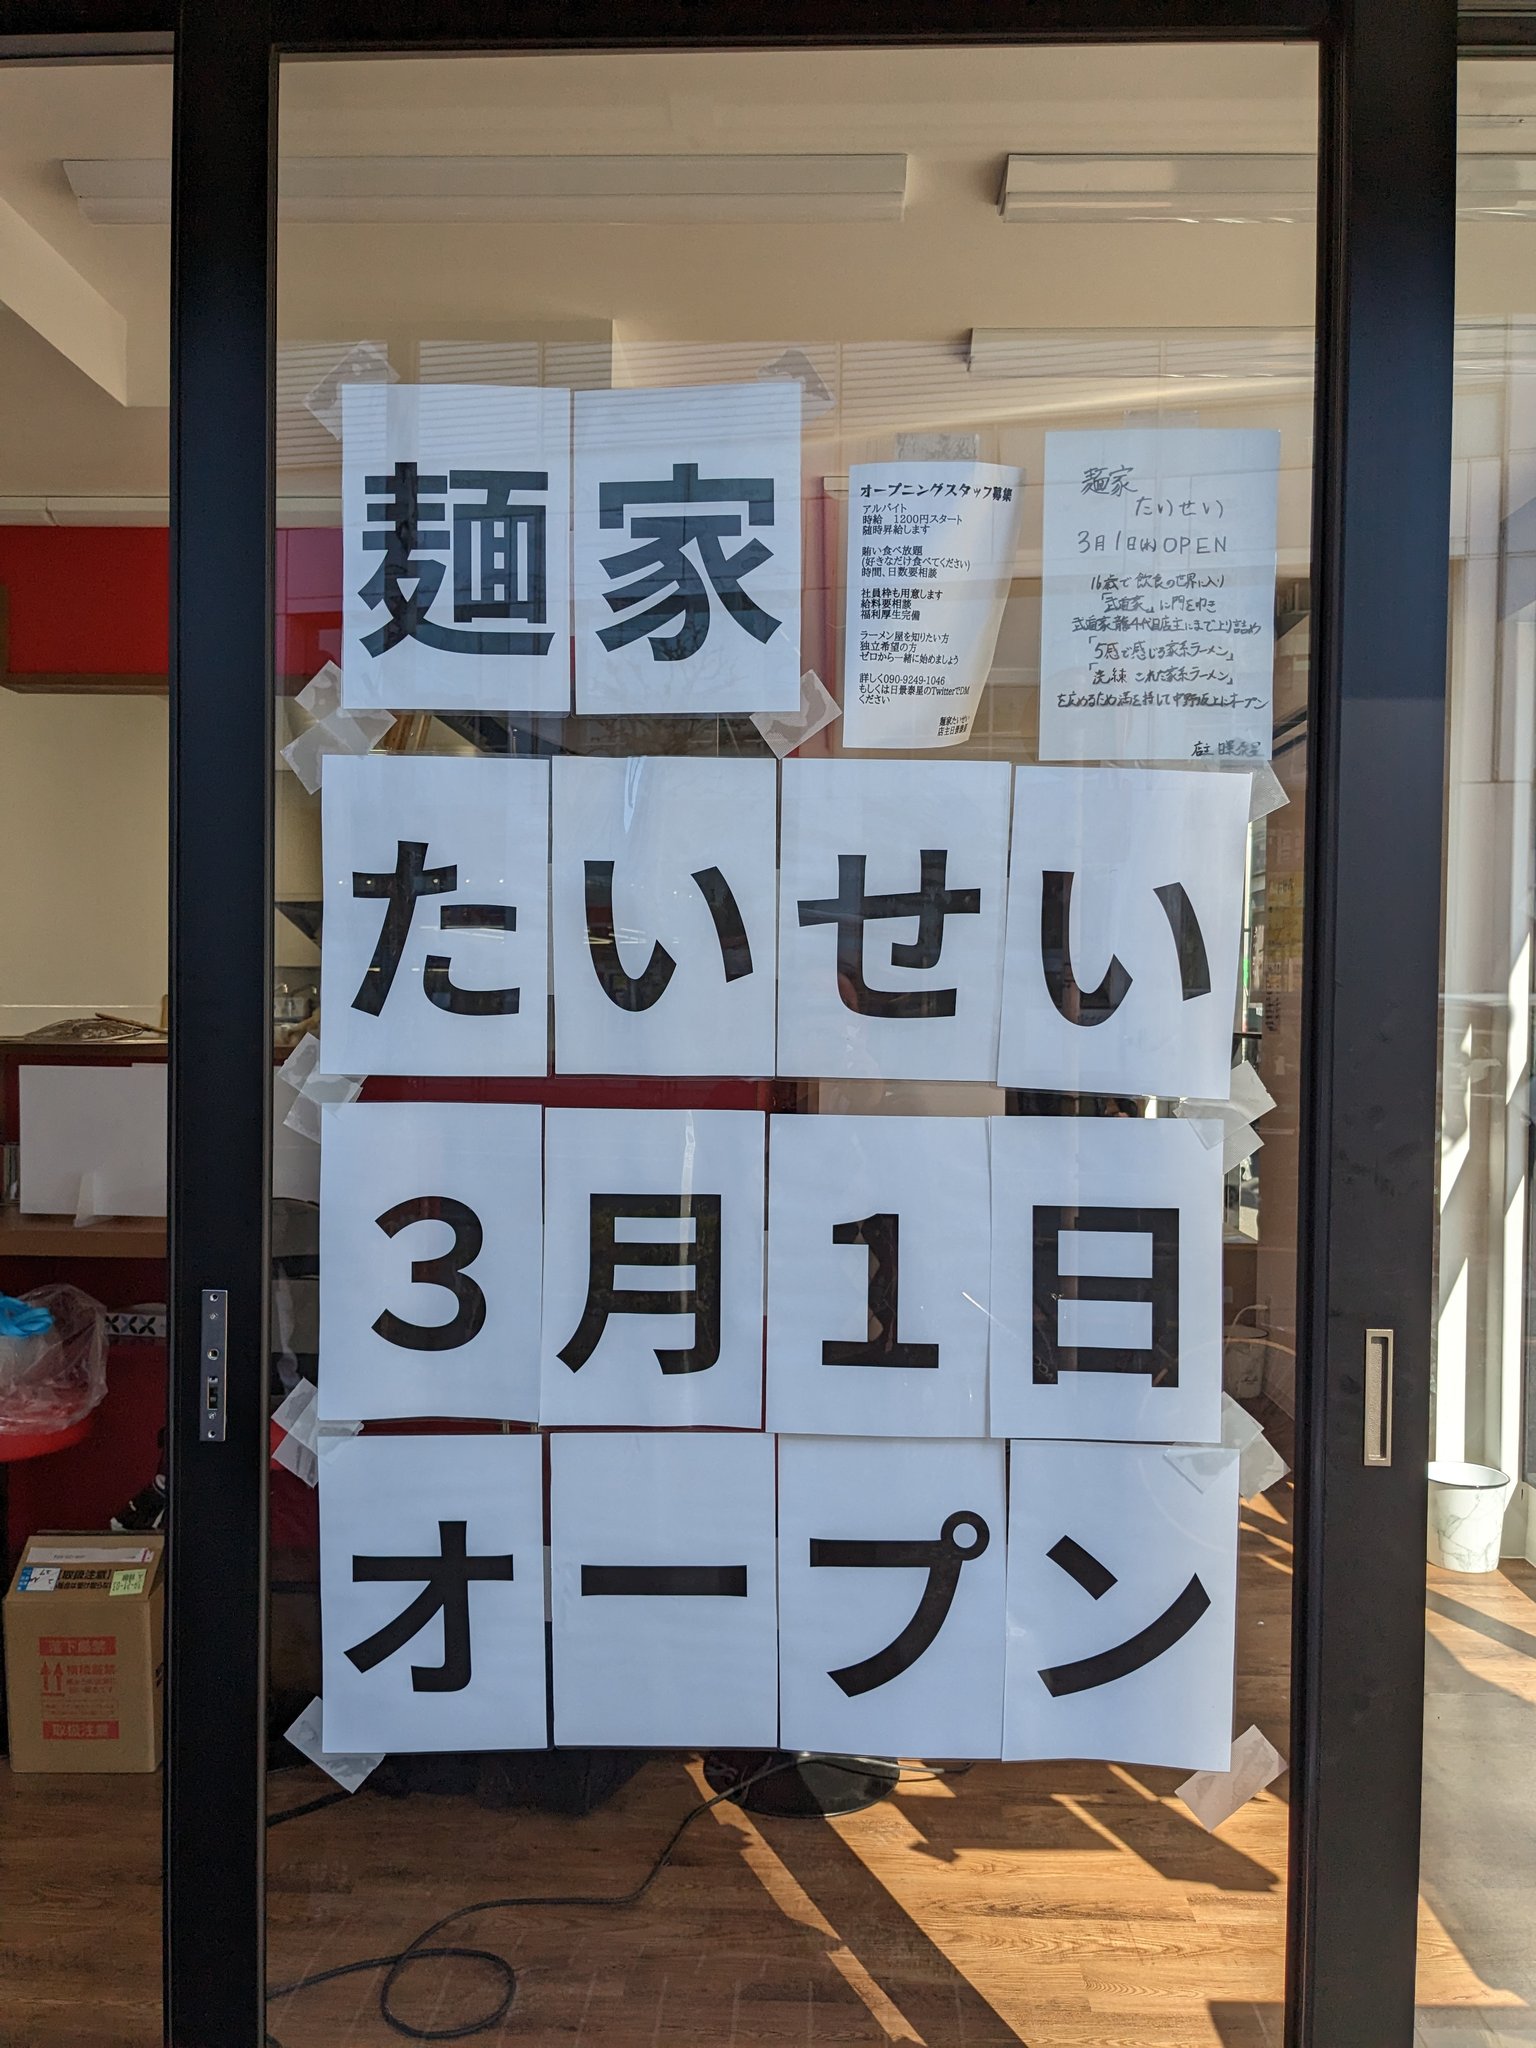 麺家
たいせい
3月1日
オープン
オープニングスタッフ募集
アルバイト
時給 1200円スタート
随時昇給します
賄い食べ放題
(好きなだけ食べてください)
時間、日数要相談
社員枠も用意します
給料要相談
福利厚生完備
ラーメン屋を知りたい方
独立希望の方
ゼロから一緒に始めましょう
詳しく090-9249-1046
もしくは日景泰星のTwitterでDM
ください
麺家たいせい
店主日景泰星
麺家
たいせい
3月1日(水)OPEN
16歳で飲食の世界に入り
「武道家」に門を叩き
武道家龍4代目店主にまで上り詰め
「5感で感じる家系ラーメン」
「洗練された家系ラーメン」
を広めるため満を持して中野坂上にオープン
店主 日景泰星
取扱注意
落下厳禁
横積厳禁
取扱注意